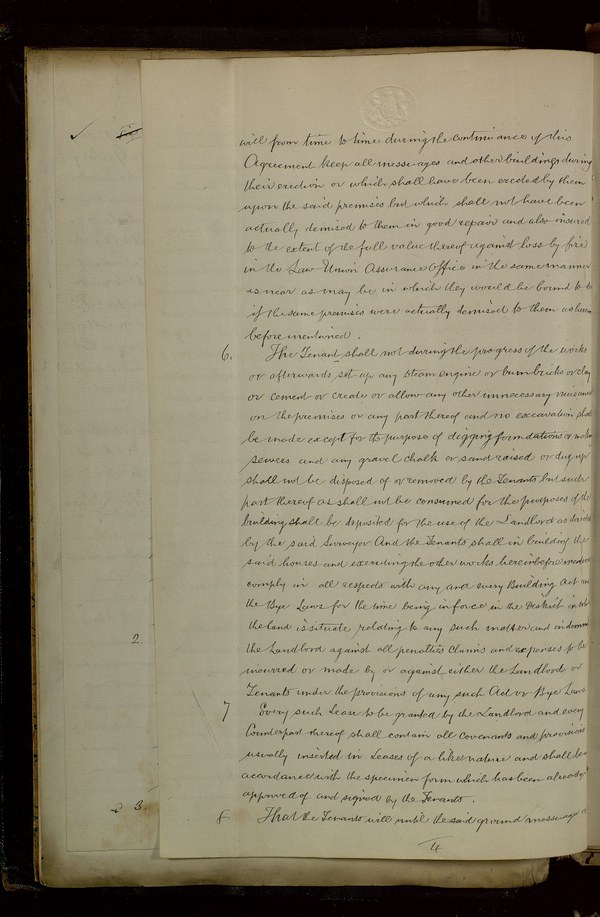 will from time to time during the continuance of this
Agreement keep all messuages and other buildings during
their erection or which shall have been erected by them
upon the said premises but which shall not have been
actually demised to them in good repair and also insured
to the extent of the full value thereof against loss by fire
in the Law Union Assurance Office in the same manner
as near as may be in which they would be bound to
if the same premises were actually demised to them as herein
before mentioned.
6. The Tenants shall not during the progress of the works
or afterwards set up any Steam engine or burn bricks or clay
or cement or create or allow any other unnecessary nuisance
on the premises or any part thereof and no excavation shall
be made except for the purpose of digging foundations or
sewers and any gravel chalk or sand raised or dug up
shall not be disposed of or removed by the Tenants but such
part thereof as shall not be consumed for the purposes of the
building shall be deposited for the use of the Landlord as
by the said Surveyor And the Tenants shall in building the
said houses and executing the other works hereinbefore
comply in all respects with any and every Building Act
the Bye Laws for the time being in force in the District in
the land is situate relating to any such matter and
2.
the Landlord against all penalties claims and expenses to be
incurred or made by or against either the Landlord or
Tenants under the provisions of any such Act or Bye Laws
7 Every such Lease to be granted by the Landlord and every
Counterpart thereof shall contain all Covenants and provisions
usually inserted in Leases of a like nature and shall be
accordance with the specimen form which has been already
approved of and signed by the Tenants.
3.
8 That the Tenants will until the said ground messuages
4